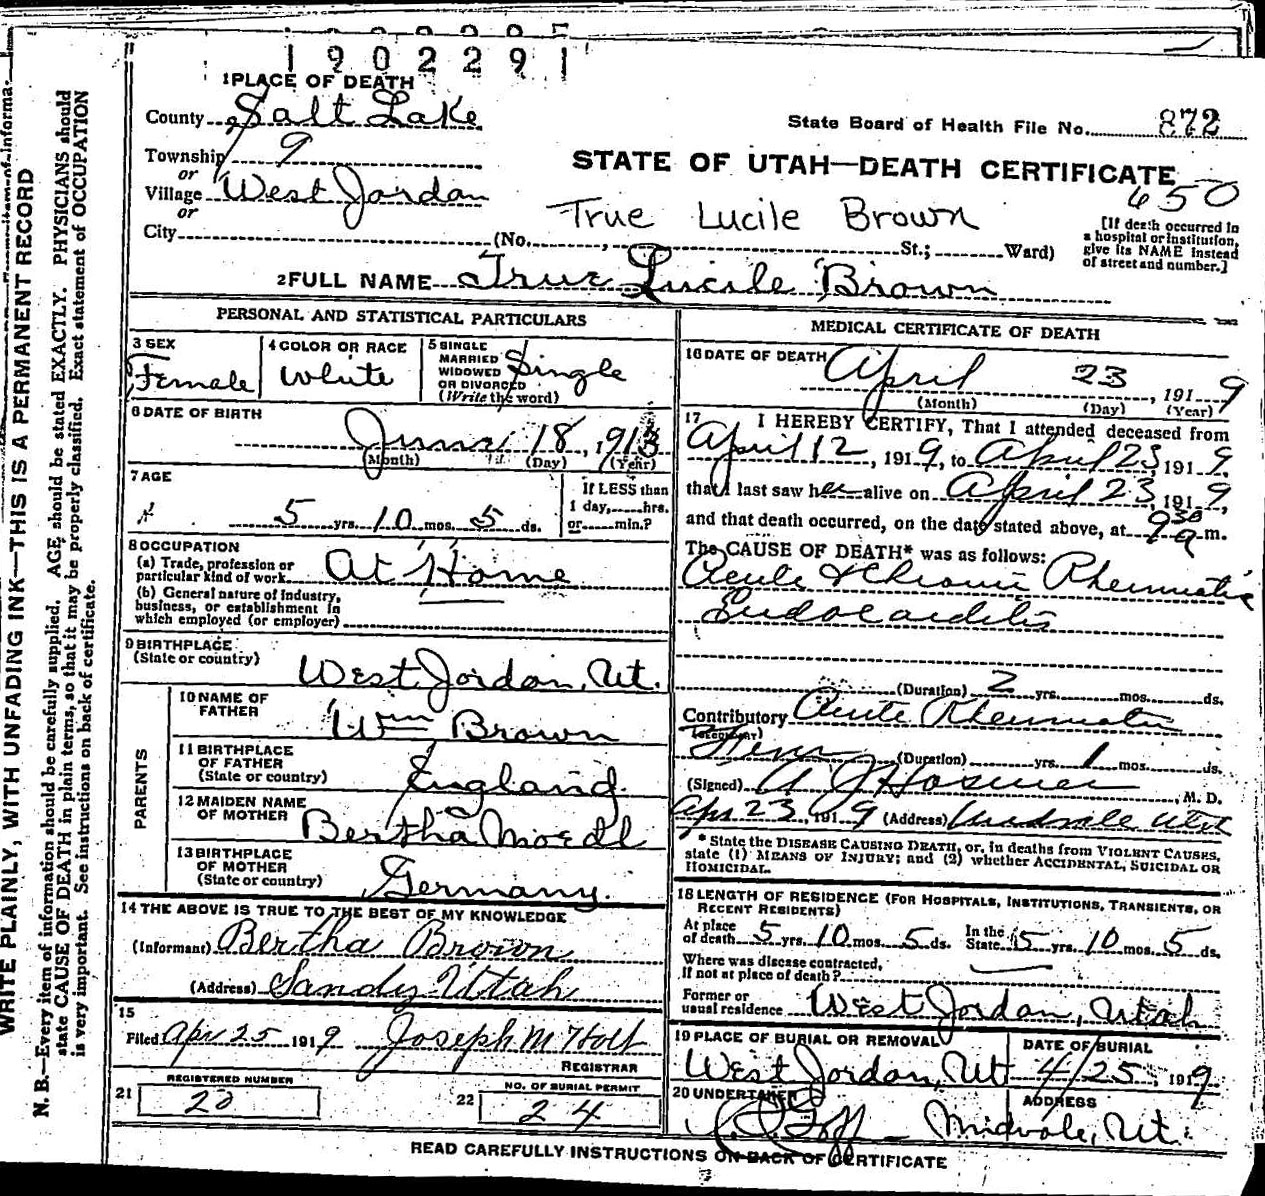 1902291
1 PLACE OF DEATH
County Salt Lake
State Board of Health File No. 872
Township 9
or
STATE OF UTAH—DEATH CERTIFICATE
450
Village West Jordan
or
True Lucile Brown
City (No. , St.; Ward)
[If death occurred in
a hospital or institution,
give its NAME instead
of street and number.]
2 FULL NAME True Lucile Brown
PERSONAL AND STATISTICAL PARTICULARS
3 SEX
Female
4 COLOR OR RACE
White
5 SINGLE
MARRIED
WIDOWED
OR DIVORCED
(Write the word)
Single
6 DATE OF BIRTH
June 18, 1913
(Month) (Day) (Year)
7 AGE
5 yrs. 10 mos. 5 ds.
If LESS than
1 day, hrs.
or min.?
8 OCCUPATION
(a) Trade, profession or
particular kind of work At Home
(b) General nature of industry,
business, or establishment in
which employed (or employer)
9 BIRTHPLACE
(State or country)
West Jordan, Ut.
PARENTS
10 NAME OF
FATHER
Wm Brown
11 BIRTHPLACE
OF FATHER
(State or country)
England
12 MAIDEN NAME
OF MOTHER
Bertha Moedl
13 BIRTHPLACE
OF MOTHER
(State or country)
Germany.
14 THE ABOVE IS TRUE TO THE BEST OF MY KNOWLEDGE
(Informant) Bertha Brown
(Address) Sandy Utah
15
Filed Apr 25 1919 Joseph M Holt
REGISTRAR
21 REGISTERED NUMBER
20
22 NO. OF BURIAL PERMIT
24
MEDICAL CERTIFICATE OF DEATH
16 DATE OF DEATH
April 23, 1919
(Month) (Day) (Year)
17 I HEREBY CERTIFY, That I attended deceased from
April 12, 1919, to April 23, 1919,
that I last saw her alive on April 23, 1919,
and that death occurred, on the date stated above, at 9 30 a m.
The CAUSE OF DEATH* was as follows:
Acute & Chronic Rheumatic
Endocarditis
(Duration) 2 yrs. mos. ds.
Contributory Acute Rheumatic
(SECONDARY)
Fever (Duration) yrs. 1 mos. ds.
(Signed) A J Hosmer, M. D.
Apr 23, 1919 (Address) Midvale Utah
* State the DISEASE CAUSING DEATH, or, in deaths from VIOLENT CAUSES,
state (1) MEANS OF INJURY; and (2) whether ACCIDENTAL, SUICIDAL OR
HOMICIDAL.
18 LENGTH OF RESIDENCE (FOR HOSPITALS, INSTITUTIONS, TRANSIENTS, OR
RECENT RESIDENTS)
At place
of death 5 yrs. 10 mos. 5 ds.
In the
State 5 yrs. 10 mos. 5 ds.
Where was disease contracted,
If not at place of death?
Former or
usual residence West Jordan, Utah
19 PLACE OF BURIAL OR REMOVAL
West Jordan, Ut
DATE OF BURIAL
4/25, 1919
20 UNDERTAKER
Goff
ADDRESS
Midvale, Ut.
READ CAREFULLY INSTRUCTIONS ON BACK OF CERTIFICATE
WRITE PLAINLY, WITH UNFADING INK—THIS IS A PERMANENT RECORD
N. B.—Every item of information should be carefully supplied. AGE should be stated EXACTLY. PHYSICIANS should
state CAUSE OF DEATH in plain terms, so that it may be properly classified. Exact statement of OCCUPATION
is very important. See instructions on back of certificate.